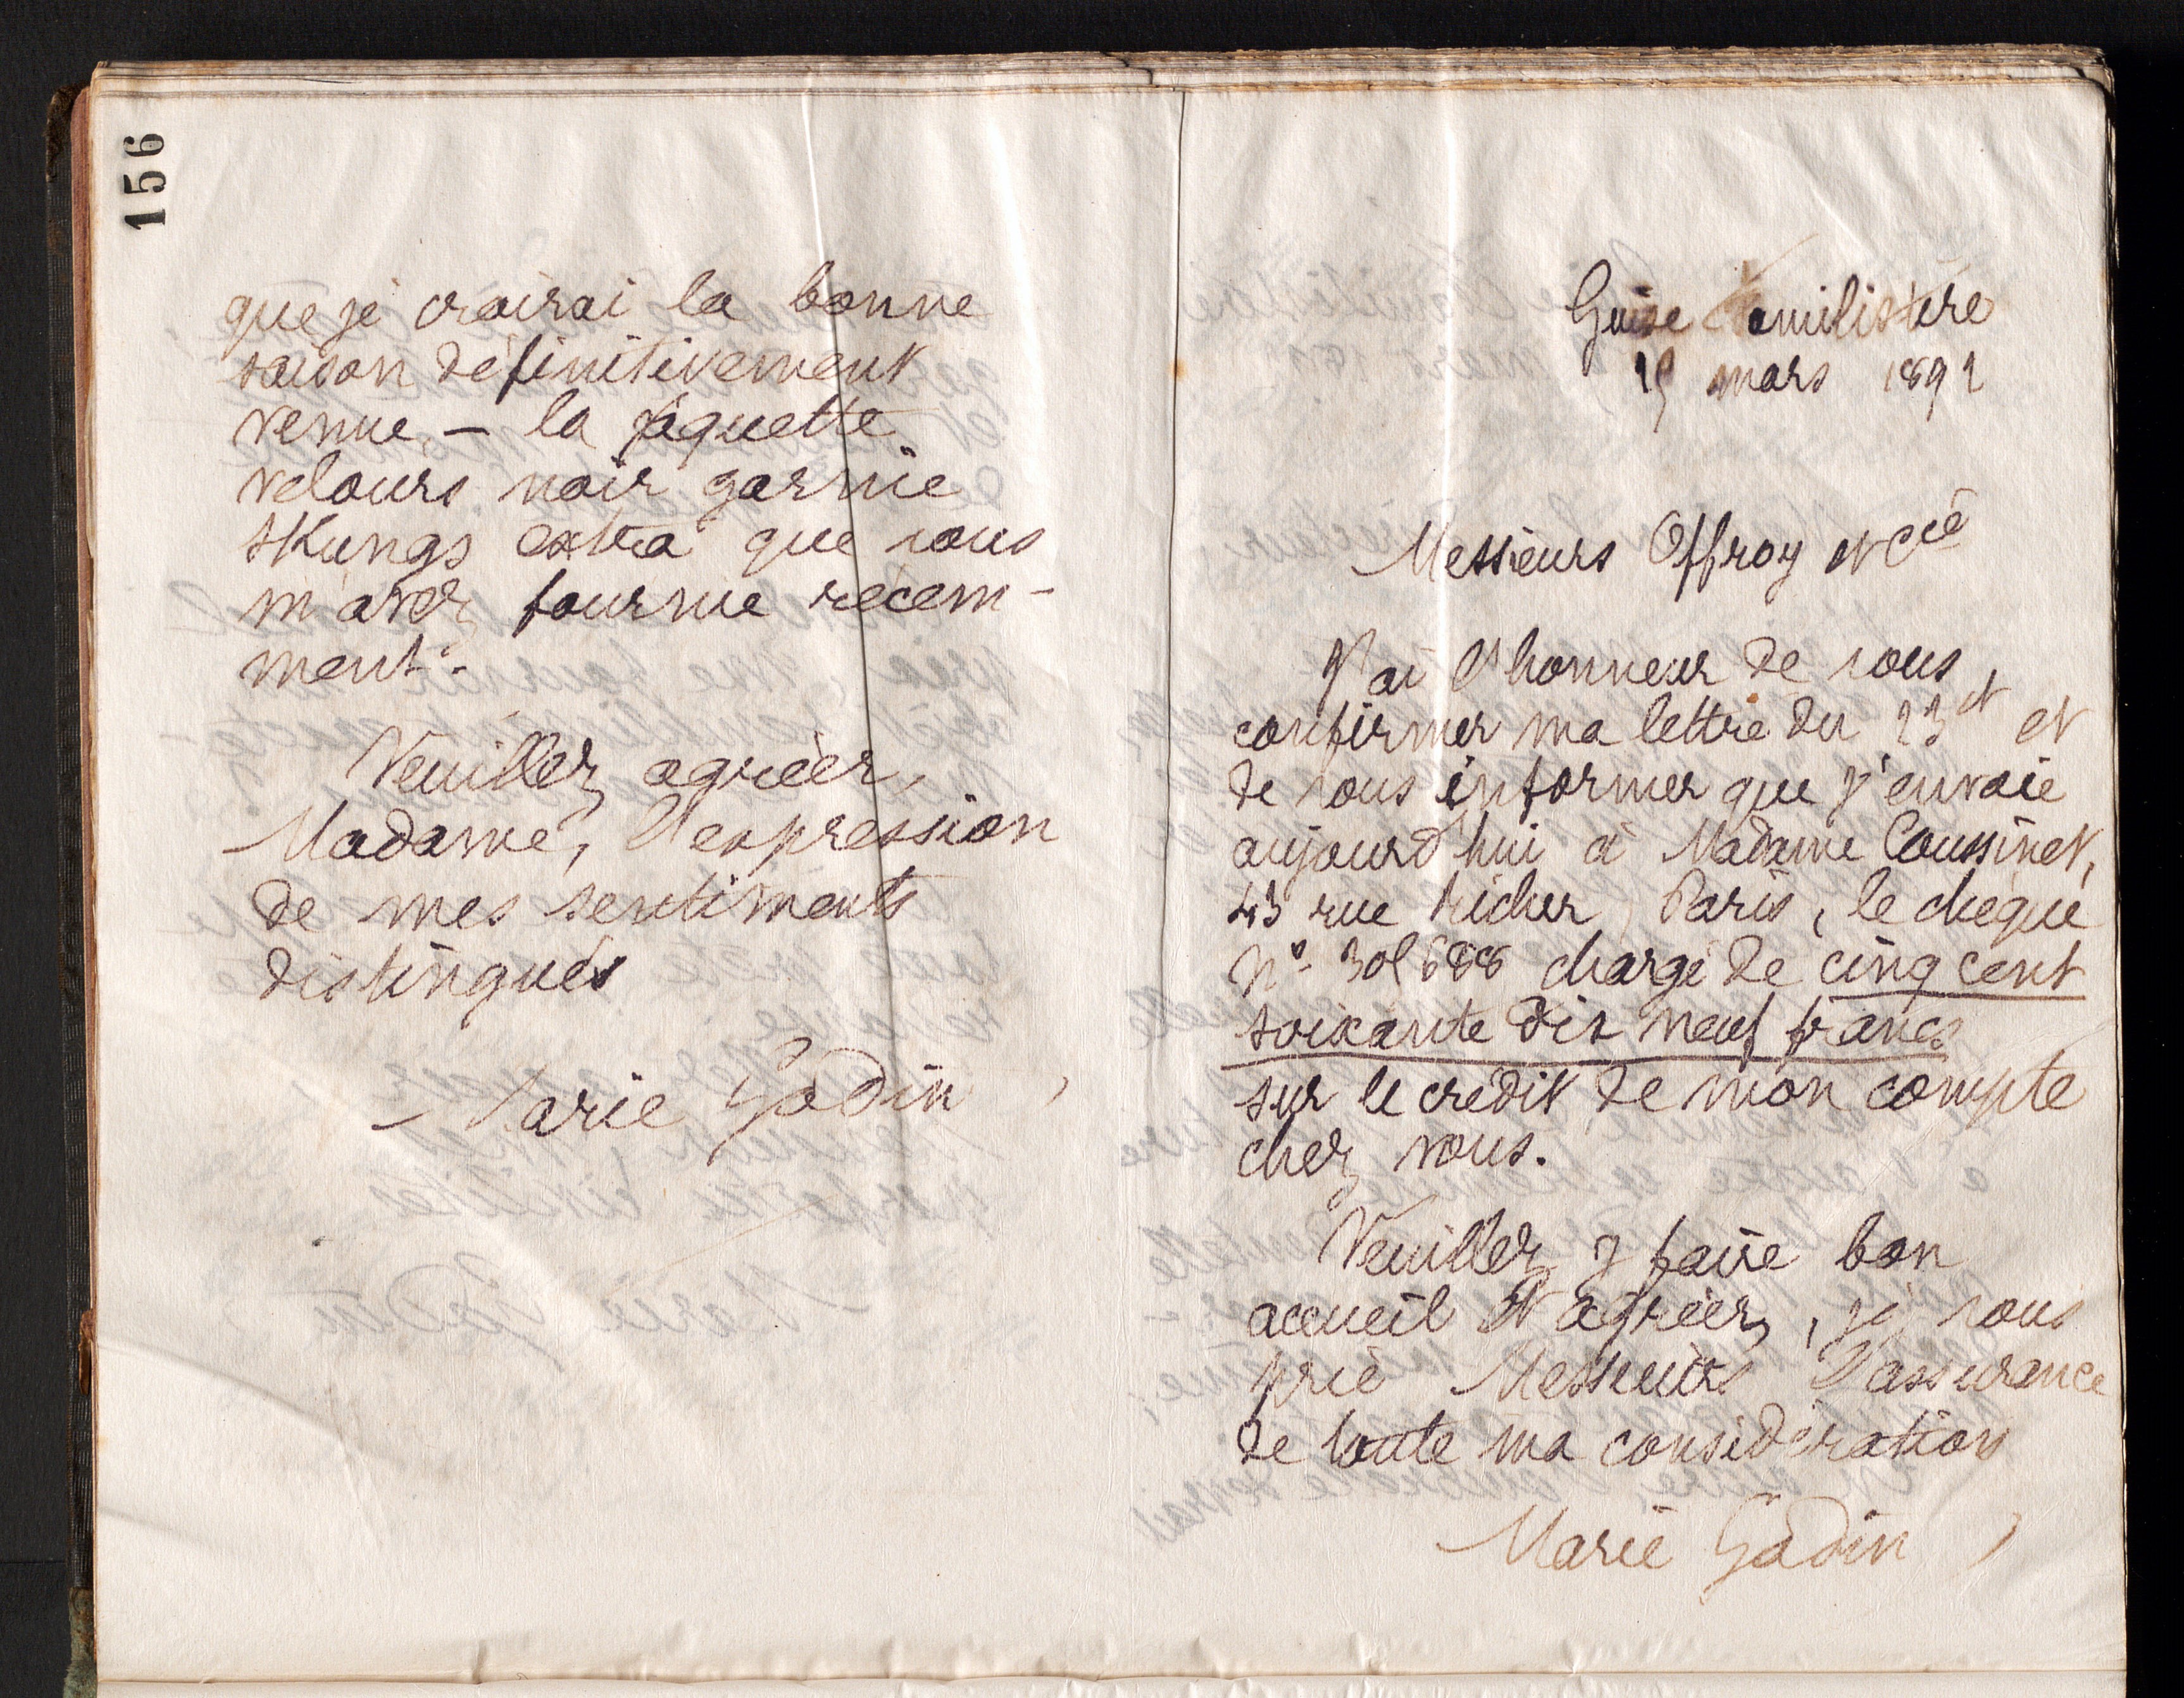 156
que je croirai la bonne
saison définitivement
venue, — la jaquette
velours noir garnie
skungs extra que vous
m'avez fournie récem-
ment.
Veuillez agréer,
Madame, l'expression
de mes sentiments
distingués
Marie Godin
Guise Familistère
mars 1891
Messieurs Offroy et Cie
J'ai l'honneur de vous
confirmer ma lettre du 23 et et
de vous informer que j'envoie
aujourd'hui à Madame Coussinet,
43 rue Richer, Paris, le chèque
No 301688 chargé de cinq cent
soixante dix neuf francs
sur le crédit de mon compte
chez vous.
Veuillez y faire bon
accueil et agréer, je vous
prie Messieurs l'assurance
de toute ma considération
Marie Godin